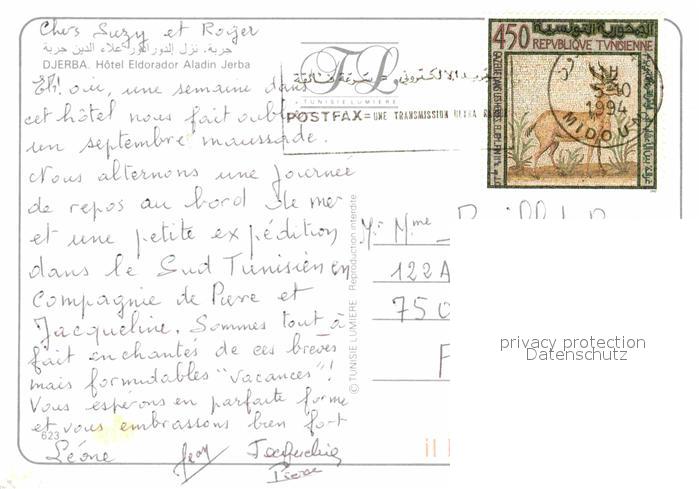 Chers Suzy et Roger
جربة. نزل الدورادور علاء الدين جربة
DJERBA. Hôtel Eldorador Aladin Jerba
Eh! oui, une semaine dans
cet hôtel nous fait oublier
un septembre maussade.
Nous alternons une journée
de repos au bord de mer
et une petite expédition
dans le Sud Tunisien en
compagnie de Pierre et
Jacqueline. Sommes tout à
fait enchantés de ces brèves
mais formidables "vacances"!
Vous espérons en parfaite forme
et vous embrassons bien fort
623
Léone Jean Jacqueline
Pierre
TL
TUNISIE LUMIERE
POSTFAX = UNE TRANSMISSION ULTRA
© TUNISIE LUMIERE Reproduction interdite
450
الجمهورية التونسية
REPVBLIQVE TVNISIENNE
5-10
1994
MIDOUN
Mr Mme
122A
750
F
privacy protection
Datenschutz